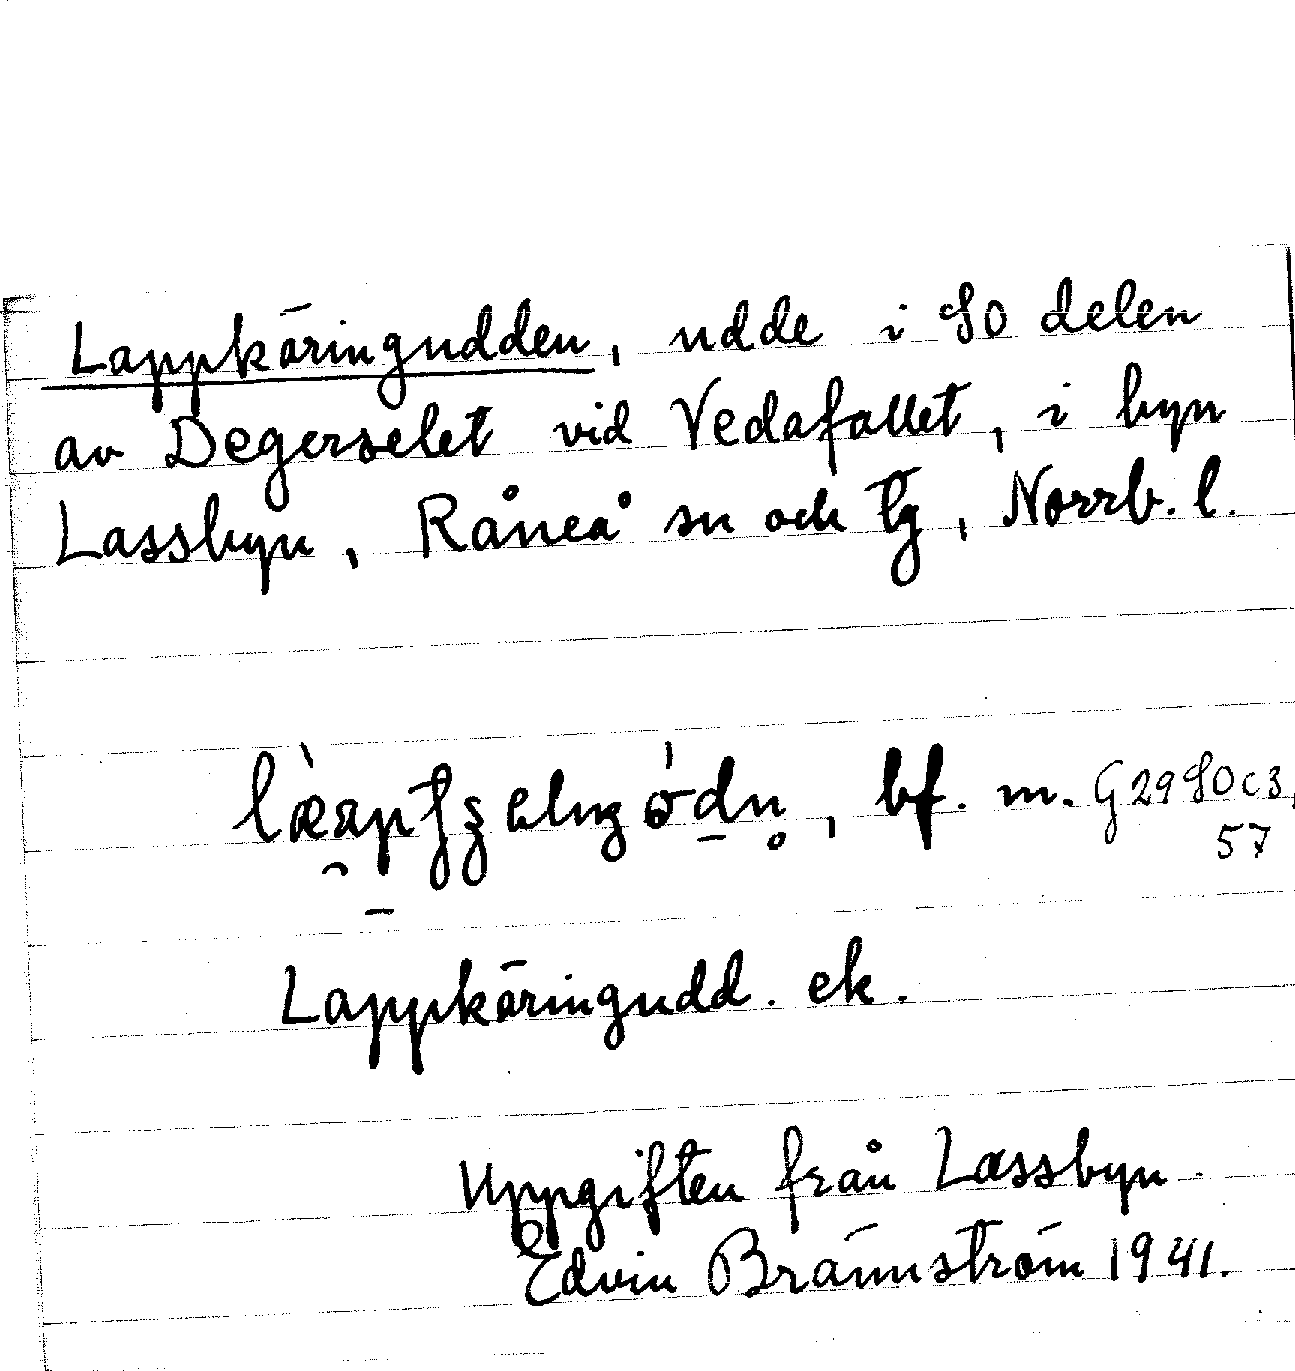 Lappkäringudden, udde i SO delen
av Degerselet vid Vedafallet, i byn
Lassbyn, Råneå sn och tg, Norrb. l.
bf. m. G 29 SO c 3,
57
Lappkäringudd. ek.
Uppgiften från Lassbyn
Edvin Brännström 1941.